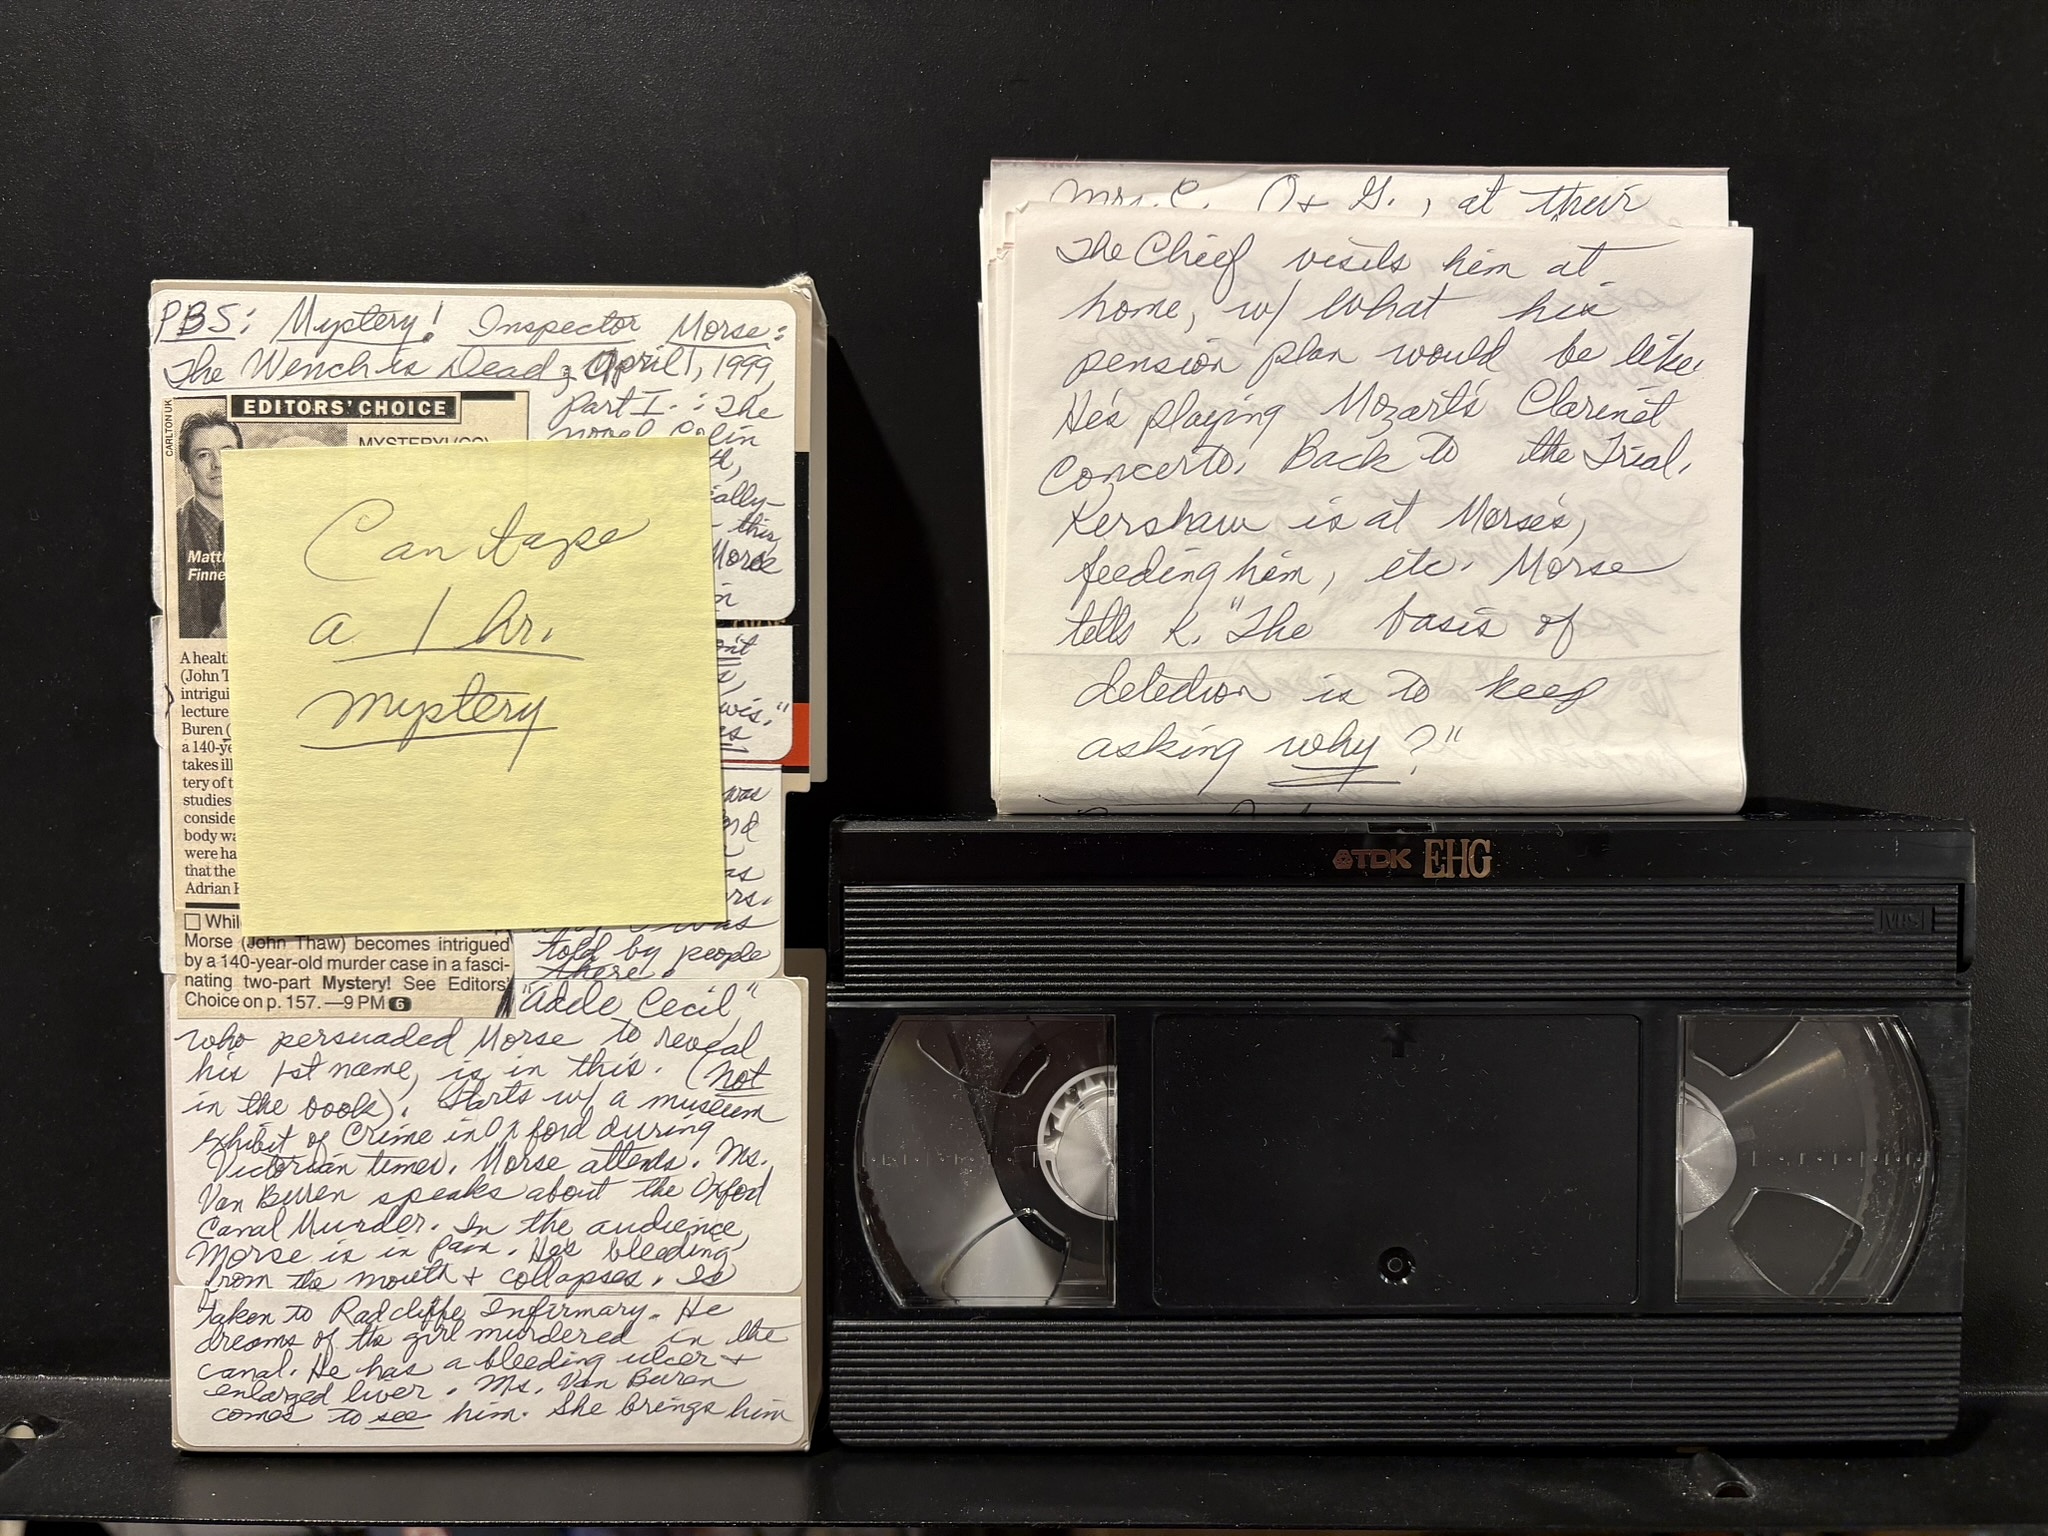 PBS: Mystery! Inspector Morse:
The Wench is Dead, April, 1999
EDITORS' CHOICE
CARLTON UK
Part I. : The
novel Colin
MYSTERY! (CC)
ially-
this,
Morse
Matt
Finne
Can tape
a 1 hr.
mystery
A healt
(John T
intrigui
lecture
Buren (
a 140-ye
takes ill
tery of t
studies
conside
body wa
were ha
that the
Adrian
wis."
was
as
rs.
was
told by people
there.
Whil
Morse (John Thaw) becomes intrigued
by a 140-year-old murder case in a fasci-
nating two-part Mystery! See Editors'
Choice on p. 157.—9 PM 6
"Adele Cecil",
who persuaded Morse to reveal
his 1st name, is in this. (Not
in the book). Starts w/ a museum
exhibit of Crime in Oxford during
Victorian times. Morse attends. Ms.
Van Buren speaks about the Oxford
Canal Murder. In the audience,
Morse is in pain. He's bleeding
from the mouth + collapses. Is
taken to Radcliffe Infirmary. He
dreams of the girl murdered in the
canal. He has a bleeding ulcer +
enlarged liver. Ms. Van Buren
comes to see him. She brings him
Mrs. C. O + G., at their
The Chief visits him at
home, w/ what his
pension plan would be like.
He's playing Mozart's Clarinet
Concerto. Back to the Trial.
Kershaw is at Morse's,
feeding him, etc. Morse
tells K. "The basis of
detection is to keep
asking why?"
TDK EHG
VHS